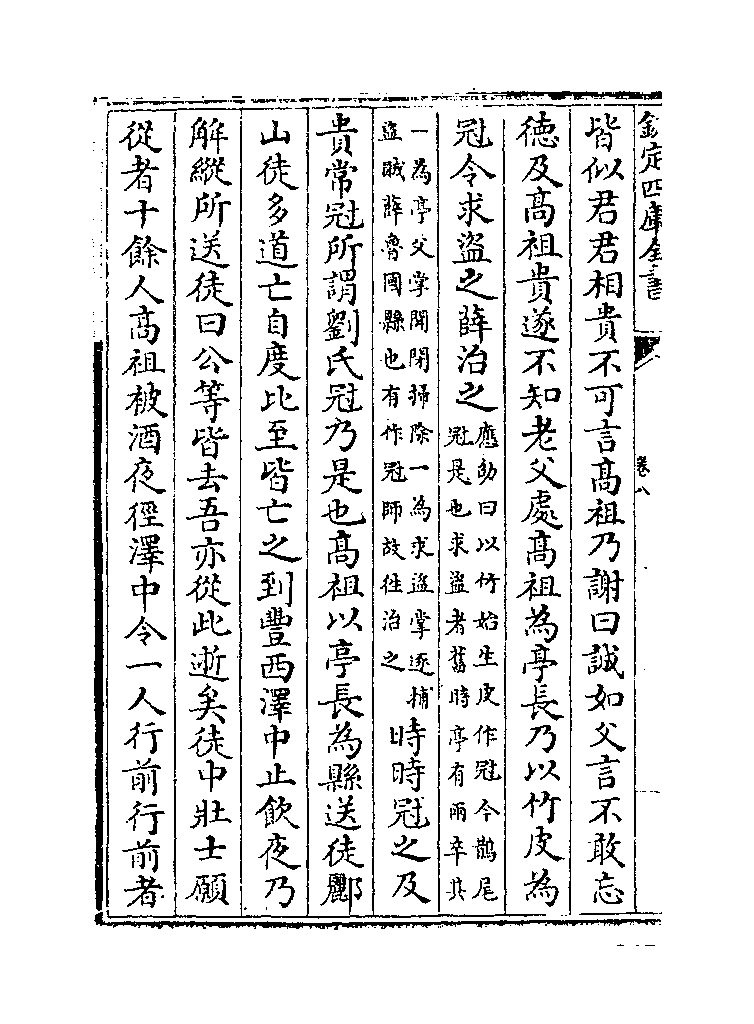 欽定四庫全書
卷八
皆似君君相貴不可言髙祖乃謝曰誠如父言不敢忘
徳及髙祖貴遂不知老父處髙祖為亭長乃以竹皮為
冠令求盜之薛治之
應劭曰以竹始生皮作冠今鵲尾
冠是也求盜者舊時亭有兩卒其
一為亭父掌開閉掃除一為求盜掌逐捕
盜賊薛魯國縣也有作冠師故往治之
時時冠之及
貴常冠所謂劉氏冠乃是也髙祖以亭長為縣送徒酈
山徒多道亡自度比至皆亡之到豐西澤中止飲夜乃
解縱所送徒曰公等皆去吾亦從此逝矣徒中壯士願
從者十餘人髙祖被酒夜徑澤中令一人行前行前者